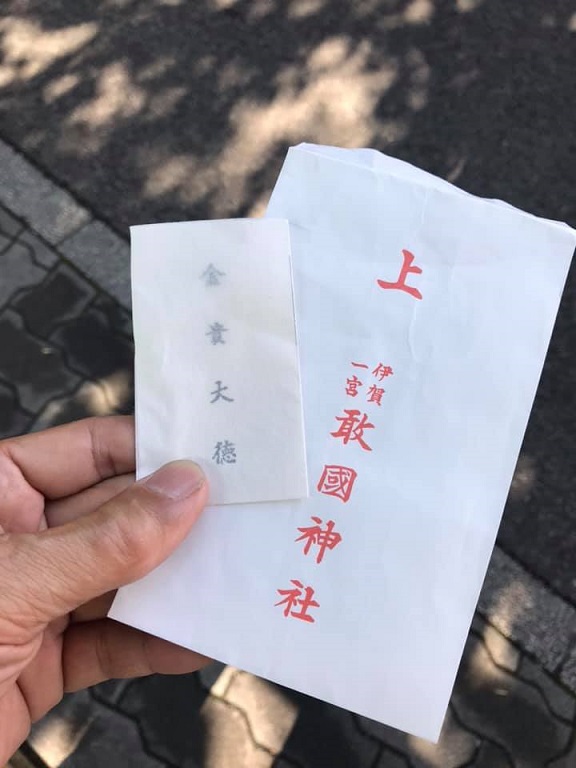 上
伊賀
一宮
敢國神社
金貴大徳